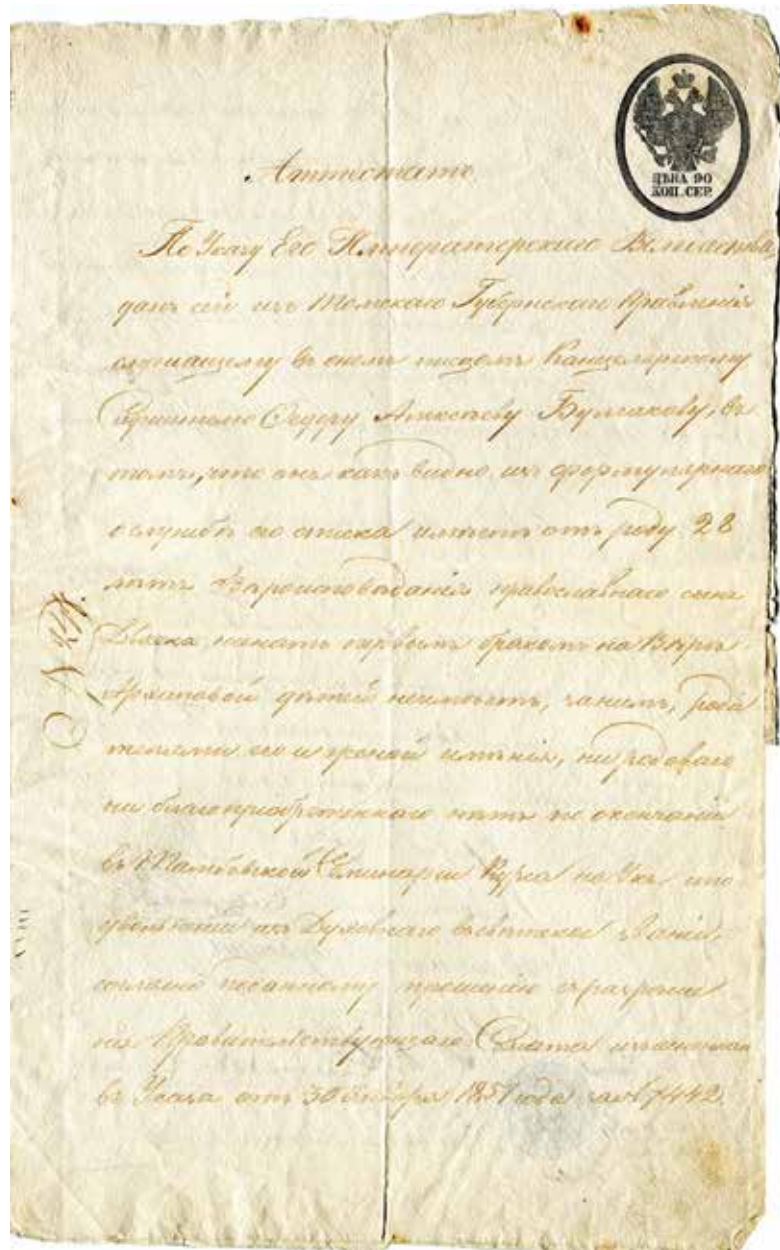 ЦѢНА 90
КОП. СЕР.
Аттестатъ
По Указу Его Императорскаго Величества
данъ сей изъ Томскаго Губернскаго Правленія
служащему въ ономъ писцомъ Канцелярскому
Служителю Федору Алексѣеву Булгакову, въ
томъ, что онъ какъ видно изъ формулярнаго
о службѣ его списка имѣетъ отъ роду 28
лѣтъ Вѣроисповѣданія православнаго сынъ
Дьячка, женатъ первымъ бракомъ на Вѣрѣ
Архиповой дѣтей неимѣетъ, за нимъ, роди
телями его и женой имѣнія, ни родоваго
ни благопріобрѣтеннаго нѣтъ по окончаніи
въ Тамбовской Семинаріи Курса Наукъ и по
увольненіи изъ Духовнаго въ свѣтское званіе,
согласно поданному прошенію съ разрѣше
нія Правительствующаго Сената
въ Указѣ отъ 30 1851 года за № 7442.